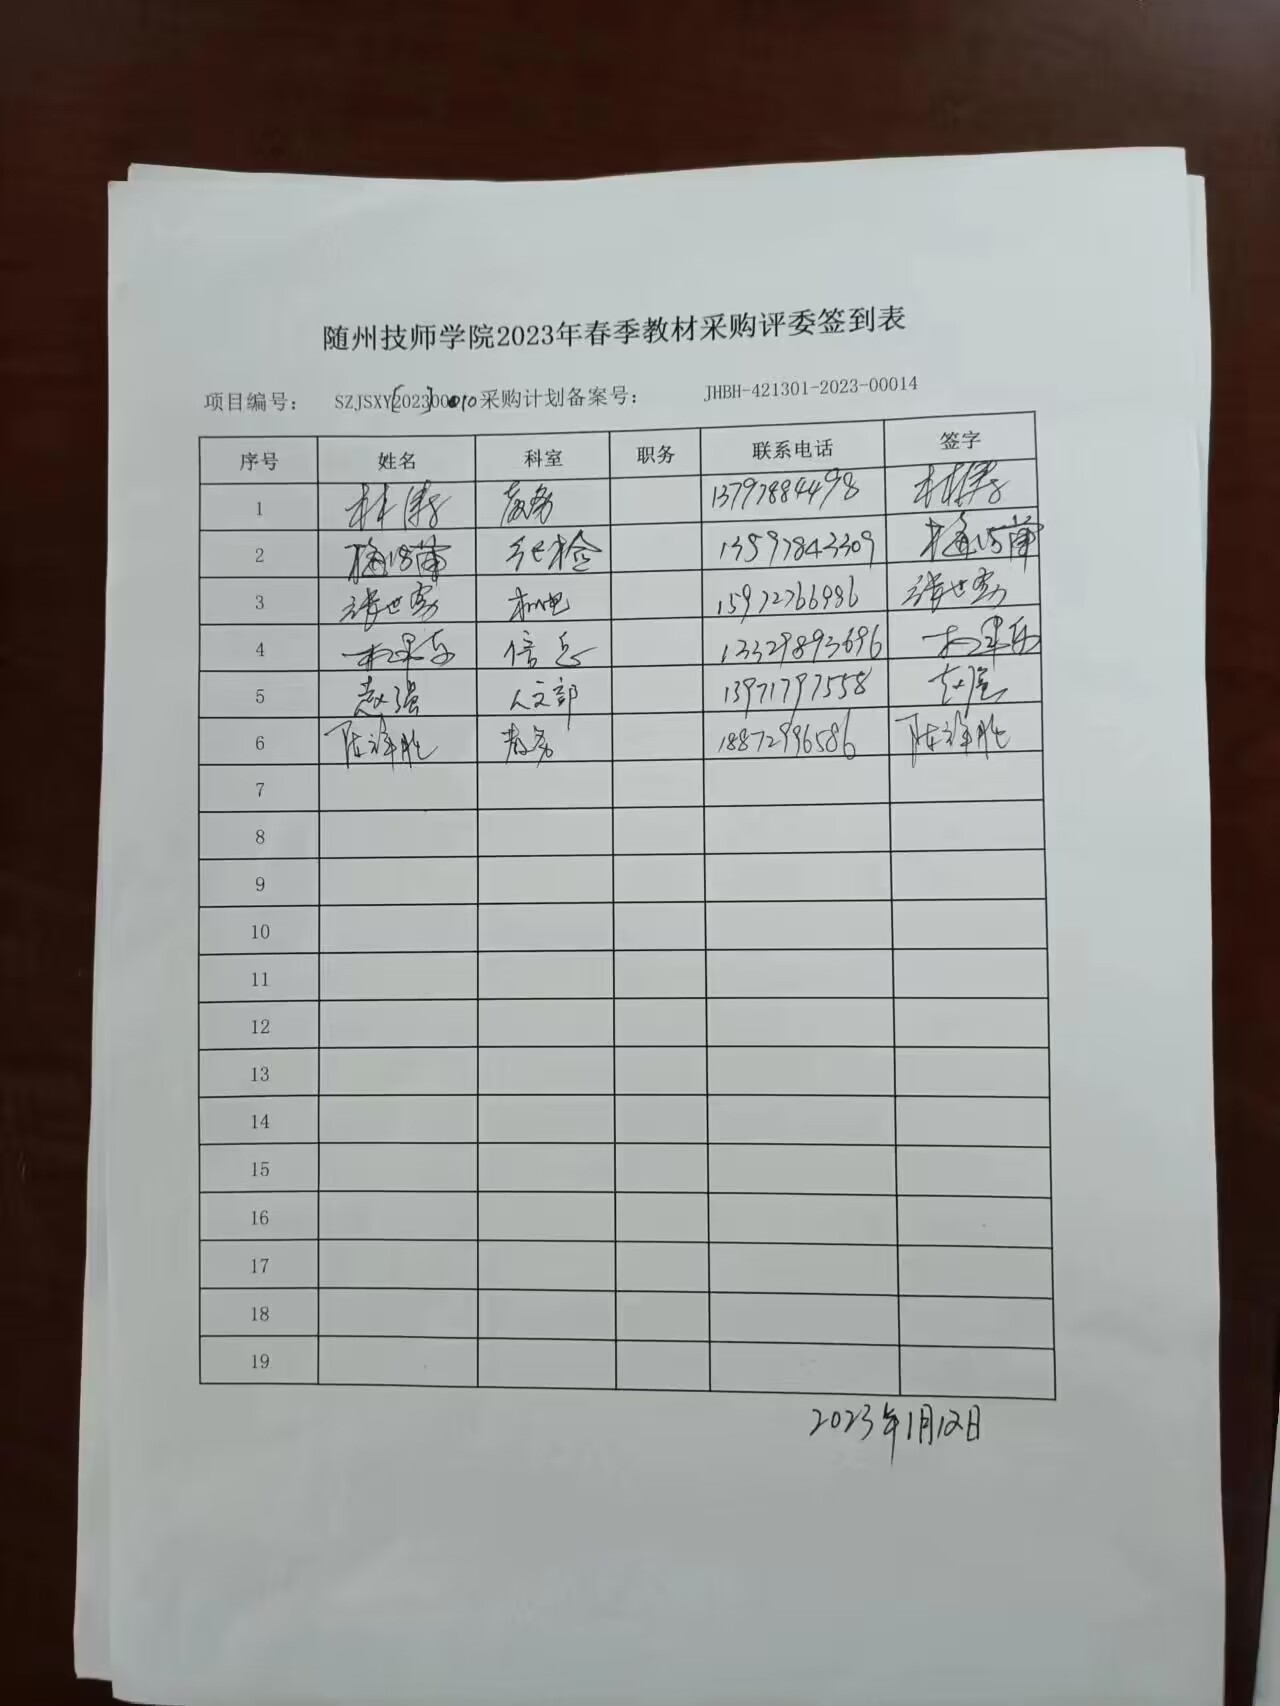 随州技师学院2023年春季教材采购评委签到表
项目编号： SZJSXY[2023]0010 采购计划备案号： JHBH-421301-2023-00014
序号 姓名 科室 职务 联系电话 签字
1 林涛 教务 13797884498 林涛
2 纪检 13597843309
3 机电 15972766986
4 信息 13329893696
5 赵强 人文部 13971797558 赵强
6 教务 18872996586
7
8
9
10
11
12
13
14
15
16
17
18
19
2023年1月12日